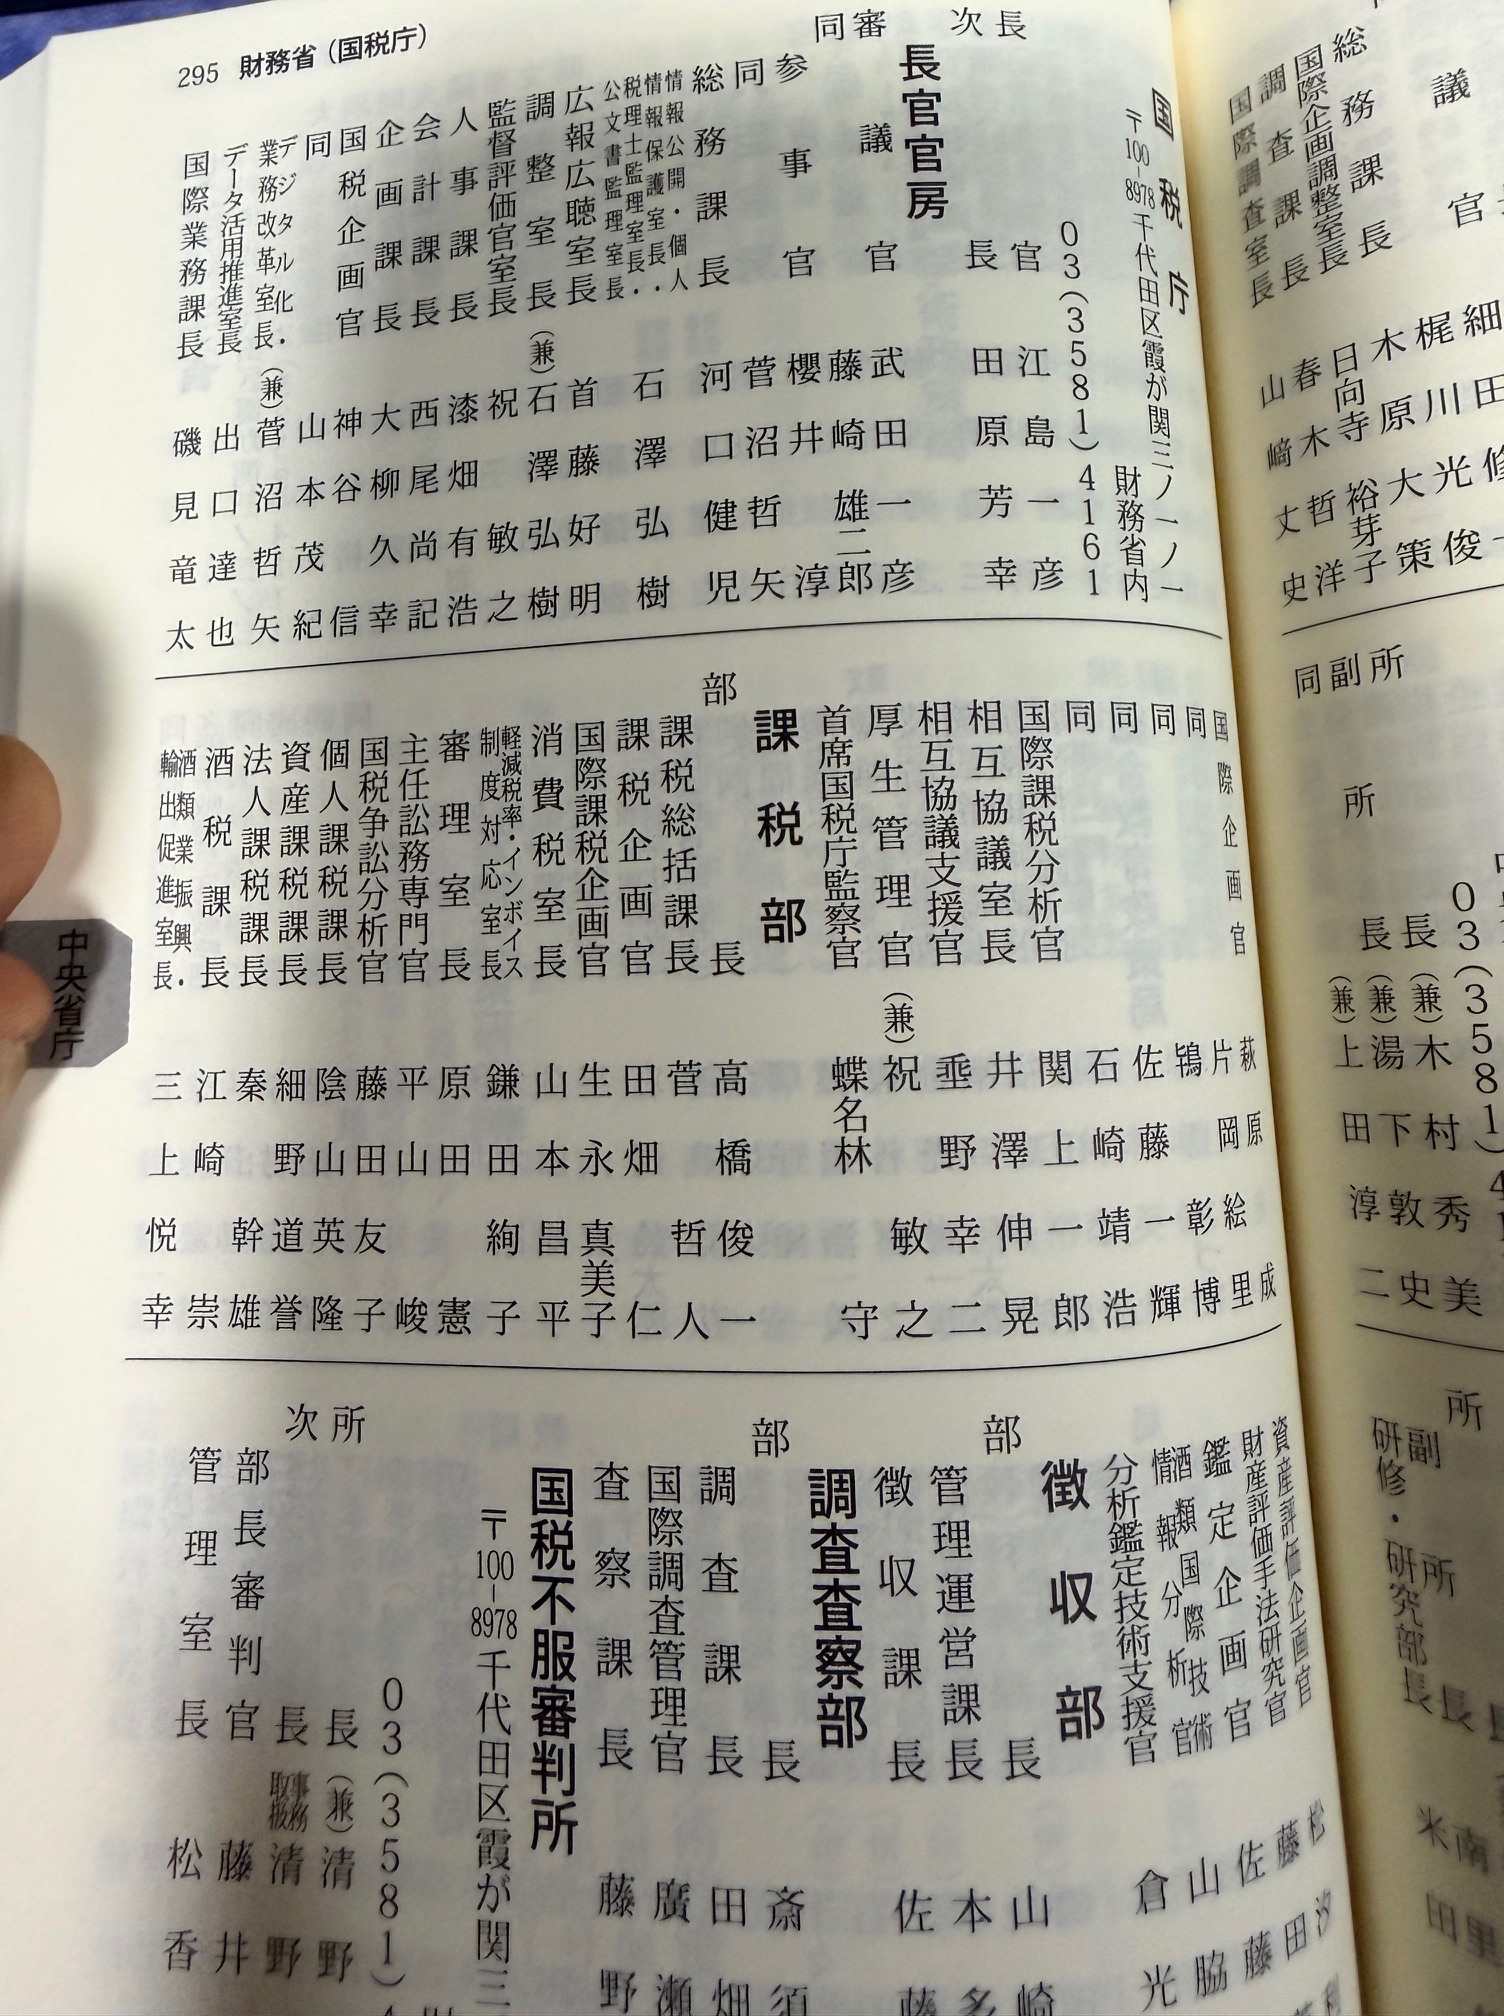 295 財務省(国税庁)
国税庁
〒100-8978 千代田区霞が関三ノ一ノ一
財務省内
03(3581)4161
長官 江島一彦
次長 田原芳幸
長官官房
審議官 武田一彦
同 藤崎雄二郎
参事官 櫻井淳
同 菅沼哲矢
総務課長 河口健児
情報公開・個人情報保護室長・税理士監理室長・公文書監理室長 石澤弘樹
広報広聴室長 首藤好明
調整室長 (兼)石澤弘樹
監督評価官室長 祝敏之
人事課長 漆畑有浩
会計課長 西尾尚記
企画課長 大柳久幸
国税企画官 神谷信
同 山本茂紀
デジタル化・業務改革室長 (兼)菅沼哲矢
データ活用推進室長 出口達也
国際業務課長 磯見竜太
国際企画官 萩原成
同 片岡絵里
同 鴇彰博
同 佐藤一輝
同 石崎靖浩
国際課税分析官 関上一郎
相互協議室長 井澤伸晃
相互協議支援官 埀野幸二
厚生管理官 (兼)祝敏之
首席国税庁監察官 蝶名林守
課税部
部長 高橋俊一
課税総括課長 菅哲人
課税企画官 田畑仁
国際課税企画官 生永真美子
消費税室長 山本昌平
軽減税率・インボイス制度対応室長 鎌田絢子
審理室長 原田憲
主任訟務専門官 平山峻
国税争訟分析官 藤田友子
個人課税課長 陰山英隆
資産課税課長 細野道誉
法人課税課長 秦幹雄
酒税課長 江崎崇
酒類業振興・輸出促進室長 三上悦幸
資産評価企画官 松汐
財産評価手法研究官 藤田
鑑定企画官 佐藤
酒類国際技術情報分析官 山脇
分析鑑定技術支援官 倉光
徴収部
部長 山崎
管理運営課長 本多
徴収課長 佐藤
調査査察部
部長 斎須
調査課長 田畑
国際調査管理官 廣瀬
査察課長 藤野
国税不服審判所
〒100-8978 千代田区霞が関三
03(3581)
所長 (兼)清野
次長 事務取扱 清野
部長審判官 藤井
管理室長 松香
中央省庁
議官
総務課長 細田修
国際企画調整室長 梶川光俊
調査課長 木原大策
国際調査室長 日向寺裕芽子
春木哲洋
山﨑丈史
所長 (兼)木村秀美
副所長 (兼)湯下敦史
同 (兼)上田淳二
03(3581)
所
副所長
研修・研究部長